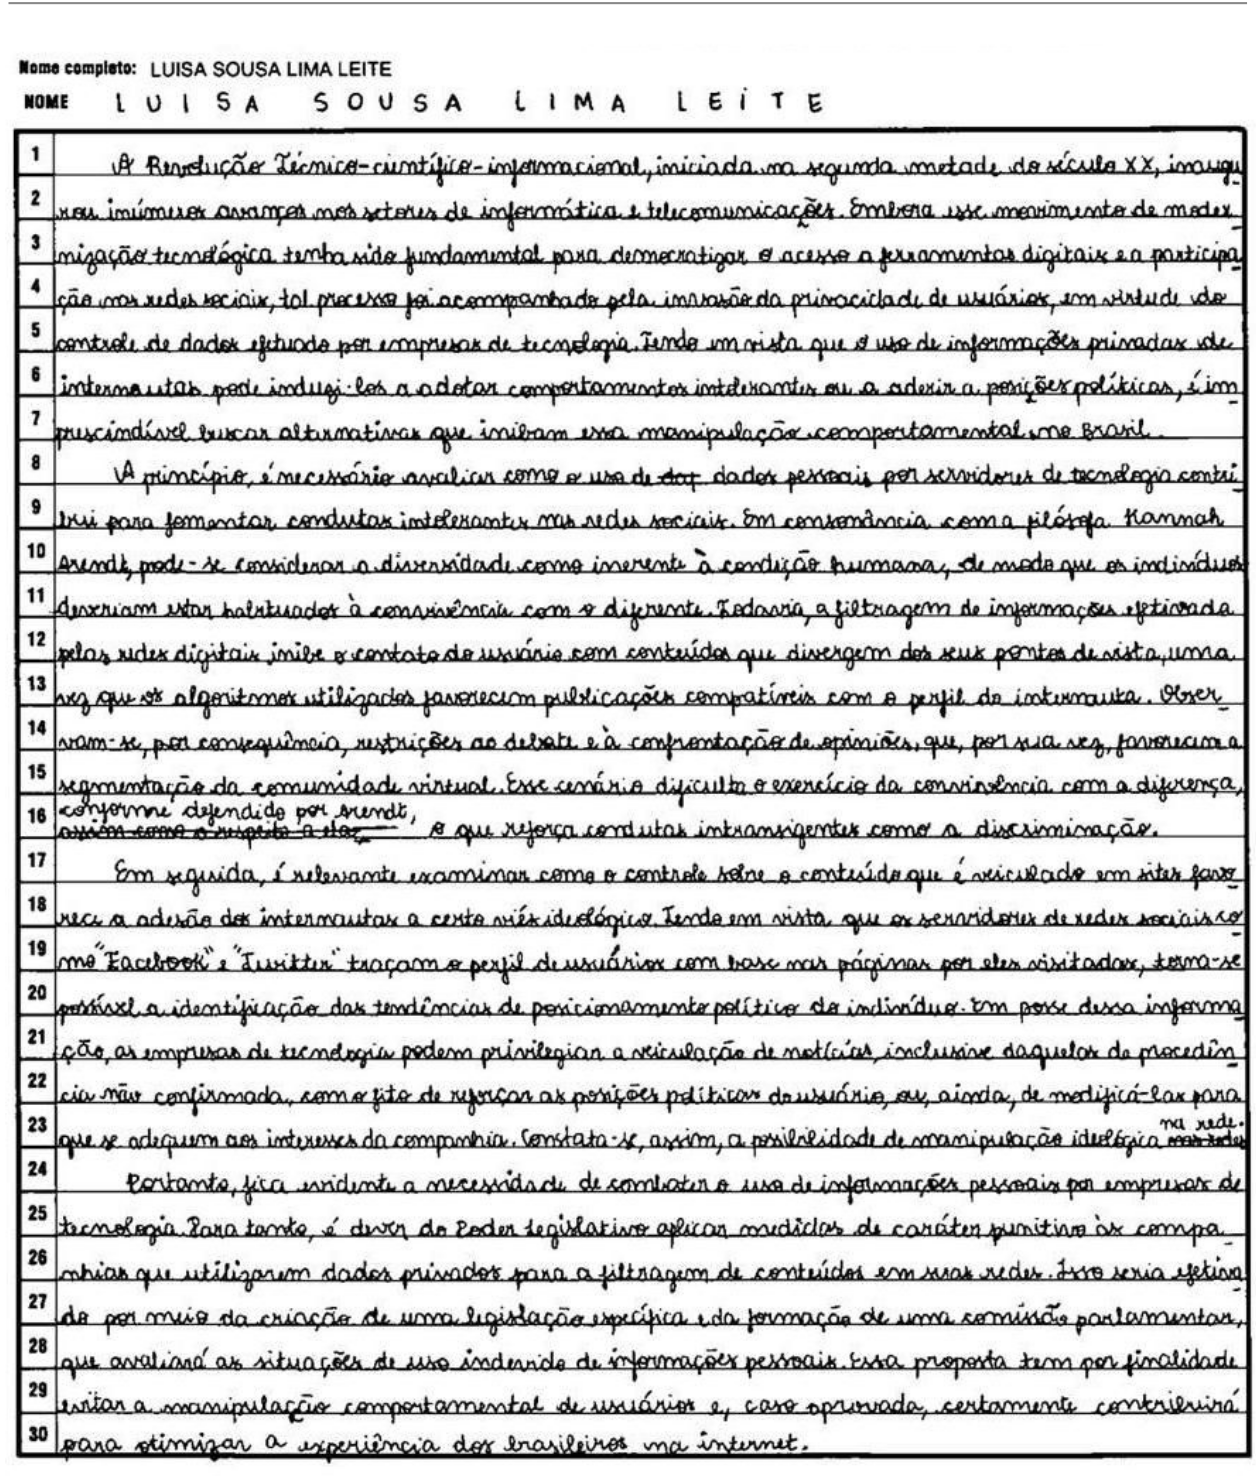 Nome completo: LUISA SOUSA LIMA LEITE
NOME LUISA SOUSA LIMA LEITE
1 A Revolução Técnico-científico-informacional, iniciada na segunda metade do século XX, inaugu
2 rou inúmeros avanços nos setores de informática e telecomunicações. Embora esse movimento de moder
3 nização tecnológica tenha sido fundamental para democratizar o acesso a ferramentas digitais e a participa
4 ção nas redes sociais, tal processo foi acompanhado pela invasão da privacidade de usuários, em virtude do
5 controle de dados efetuado por empresas de tecnologia. Tendo em vista que o uso de informações privadas de
6 internautas pode induzi-los a adotar comportamentos intolerantes ou a aderir a posições políticas, é im
7 prescindível buscar alternativas que inibam essa manipulação comportamental no Brasil.
8 A princípio, é necessário avaliar como o uso de dat dados pessoais por servidores de tecnologia contri
9 bui para fomentar condutas intolerantes nas redes sociais. Em consonância com a filósofa Hannah
10 Arendt, pode-se considerar a diversidade como inerente à condição humana, de modo que os indivíduos
11 deveriam estar habituados à convivência com o diferente. Todavia, a filtragem de informações efetivada
12 pelas redes digitais inibe o contato do usuário com conteúdos que divergem dos seus pontos de vista, uma
13 vez que os algoritmos utilizados favorecem publicações compatíveis com o perfil do internauta. Obser
14 vam-se, por consequência, restrições ao debate e à confrontação de opiniões, que, por sua vez, favorecem a
15 segmentação da comunidade virtual. Esse cenário dificulta o exercício da convivência com a diferença,
conforme defendido por Arendt,
16 assim como o respeito a ela, o que reforça condutas intransigentes como a discriminação.
17 Em seguida, é relevante examinar como o controle sobre o conteúdo que é veiculado em sites favo
18 rece a adesão dos internautas a certo viés ideológico. Tendo em vista que os servidores de redes sociais co
19 mo "Facebook" e "Twitter" traçam o perfil de usuários com base nas páginas por eles visitadas, torna-se
20 possível a identificação das tendências de posicionamento político do indivíduo. Em posse dessa informa
21 ção, as empresas de tecnologia podem privilegiar a veiculação de notícias, inclusive daquelas de procedên
22 cia não confirmada, com o fito de reforçar as posições políticas do usuário, ou, ainda, de modificá-las para
23 que se adequem aos interesses da companhia. Constata-se, assim, a possibilidade de manipulação ideológica na rede. nas redes
24 Portanto, fica evidente a necessidade de combater o uso de informações pessoais por empresas de
25 tecnologia. Para tanto, é dever do Poder Legislativo aplicar medidas de caráter punitivo às compa
26 nhias que utilizarem dados privados para a filtragem de conteúdos em suas redes. Isso seria efetiva
27 do por meio da criação de uma legislação específica e da formação de uma comissão parlamentar,
28 que avaliará as situações de uso indevido de informações pessoais. Essa proposta tem por finalidade
29 evitar a manipulação comportamental de usuários e, caso aprovada, certamente contribuirá
30 para otimizar a experiência dos brasileiros na internet.